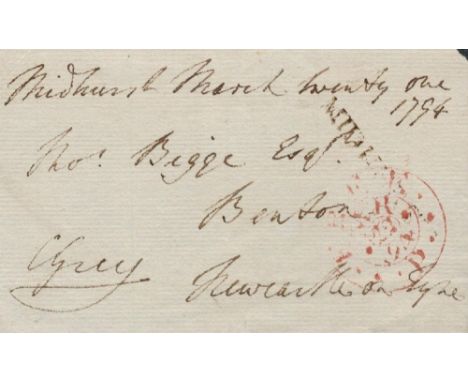 Midhurst March twenty one
1794
Tho.s Bigge Esq.r
Benton
CGrey
Newcastle on Tyne